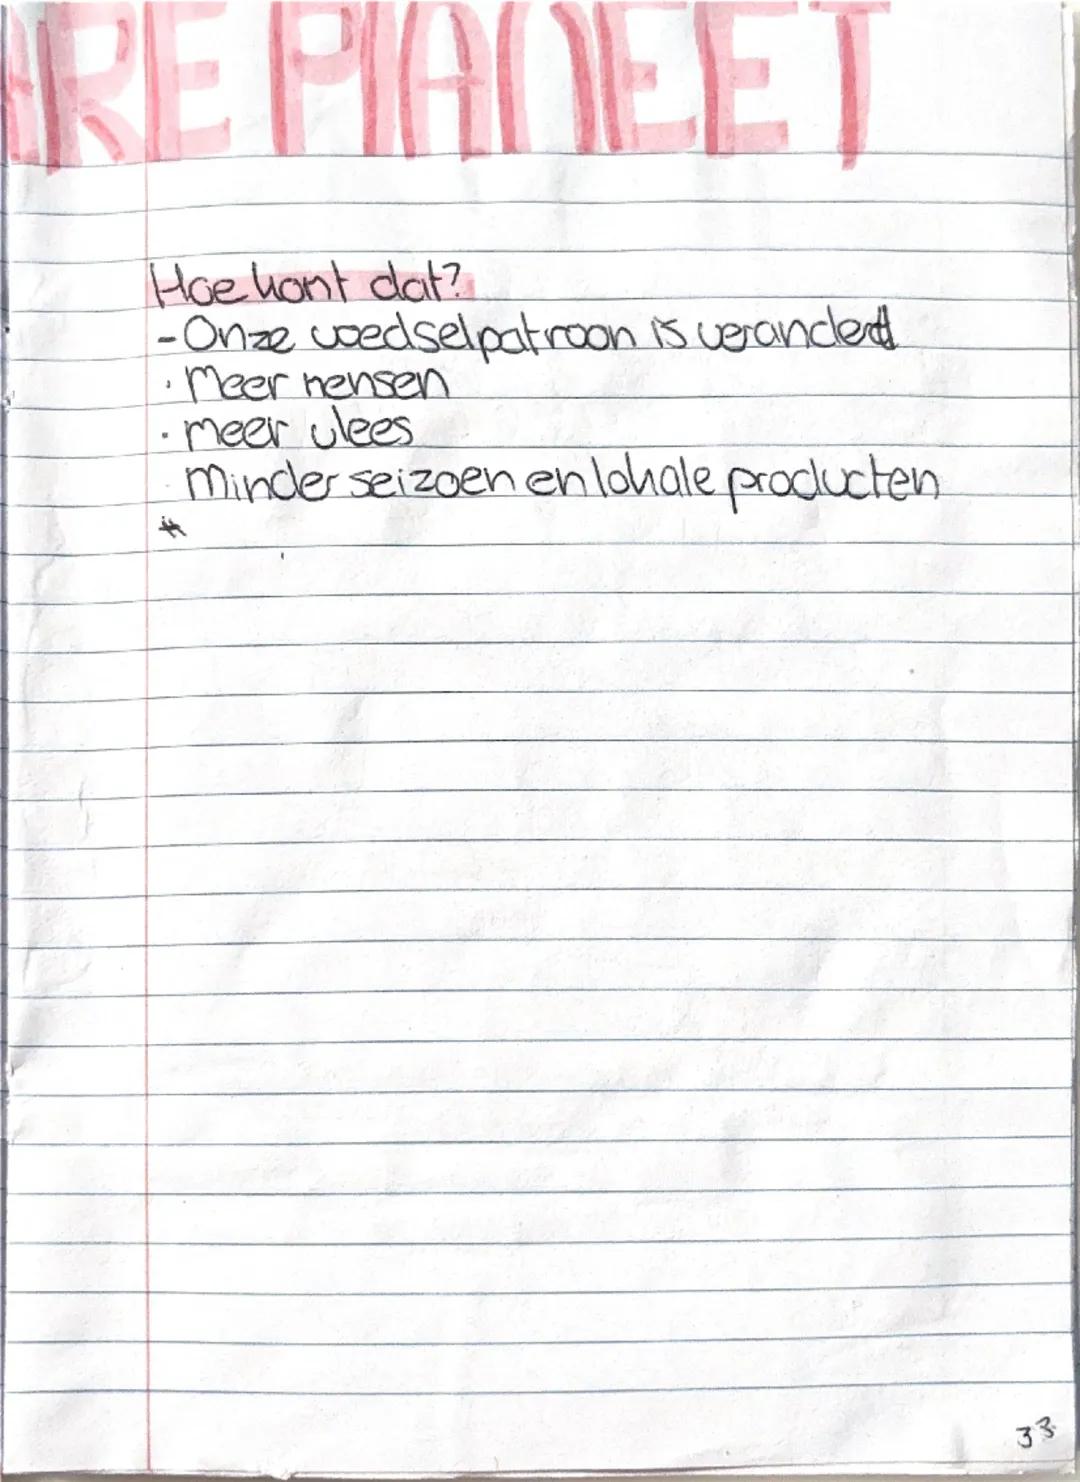 ARE PLANEET
Hoe komt dat?
- Onze voedselpatroon is veranderd
· Meer mensen
· meer vlees
· Minder seizoen en lokale producten
*
33